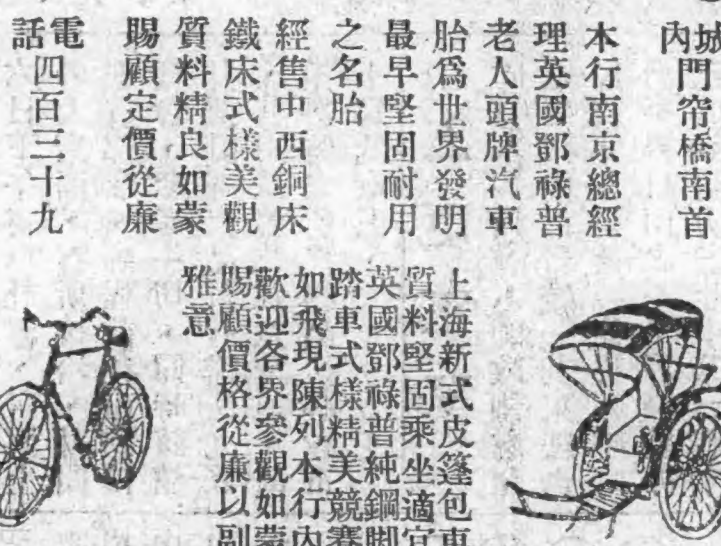 城門帘橋南首
內
本行南京總經
理英國鄧祿普
老人頭牌汽車
胎爲世界發明
最早堅固耐用
之名胎
經售中西銅床
鐵床式樣美觀
質料精良如蒙
賜顧定價從廉
電話四百三十九
上海新式皮篷包車
質料堅固乘坐適宜
英國鄧祿普純鋼脚
踏車式樣精美競賽
如飛現陳列本行內
歡迎各界參觀如蒙
賜顧價格從廉以副
雅意